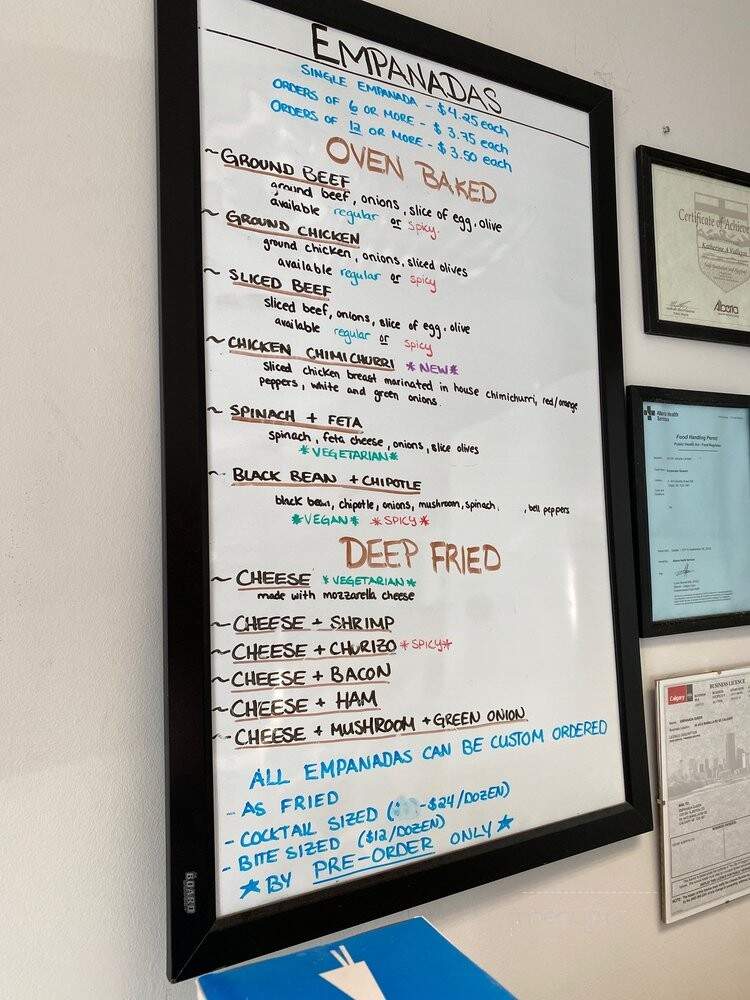 EMPANADAS
SINGLE EMPANADA - $4.25 each
ORDERS OF 6 OR MORE - $3.75 each
ORDERS OF 12 OR MORE - $3.50 each
OVEN BAKED
~ GROUND BEEF
ground beef, onions, slice of egg, olive
available regular or spicy.
~ GROUND CHICKEN
ground chicken, onions, sliced olives
available regular or spicy
~ SLICED BEEF
sliced beef, onions, slice of egg, olive
available regular or spicy
~ CHICKEN CHIMICHURRI *NEW*
sliced chicken breast marinated in house chimichurri, red/orange
peppers, white and green onions.
~ SPINACH + FETA
spinach, feta cheese, onions, slice olives
*VEGETARIAN*
~ BLACK BEAN + CHIPOTLE
black bean, chipotle, onions, mushroom, spinach, , bell peppers
*VEGAN* *SPICY*
DEEP FRIED
~ CHEESE *VEGETARIAN*
made with mozzarella cheese
~ CHEESE + SHRIMP
~ CHEESE + CHURIZO *SPICY*
~ CHEESE + BACON
~ CHEESE + HAM
~ CHEESE + MUSHROOM + GREEN ONION
ALL EMPANADAS CAN BE CUSTOM ORDERED
- AS FRIED
- COCKTAIL SIZED ( -$24/DOZEN)
- BITE SIZED ($12/DOZEN)
* BY PRE-ORDER ONLY *
BOARD
Certificate of Achieve
Katherine A
Alberta
Alberta Health
Services
Food Handling Permit
Calgary
BUSINESS LICENCE